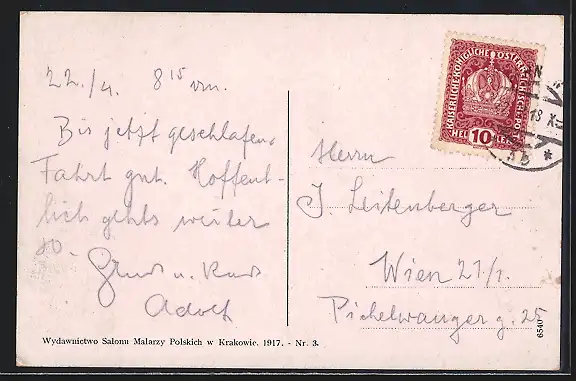 22./4. 8 15 vm.
Bis jetzt geschlafen.
Fahrt gut. Hoffent-
lich gehts weiter
so.
Gruss u. Kuss
Adolf
KAISERLICHE KÖNIGLICHE ÖSTERREICHISCHE POST
HELLER 10
18 X
Herrn
J. Leitenberger
Wien 21/1.
Pichelwanger g. 25
6540
Wydawnictwo Salonu Malarzy Polskich w Krakowie. 1917. - Nr. 3.